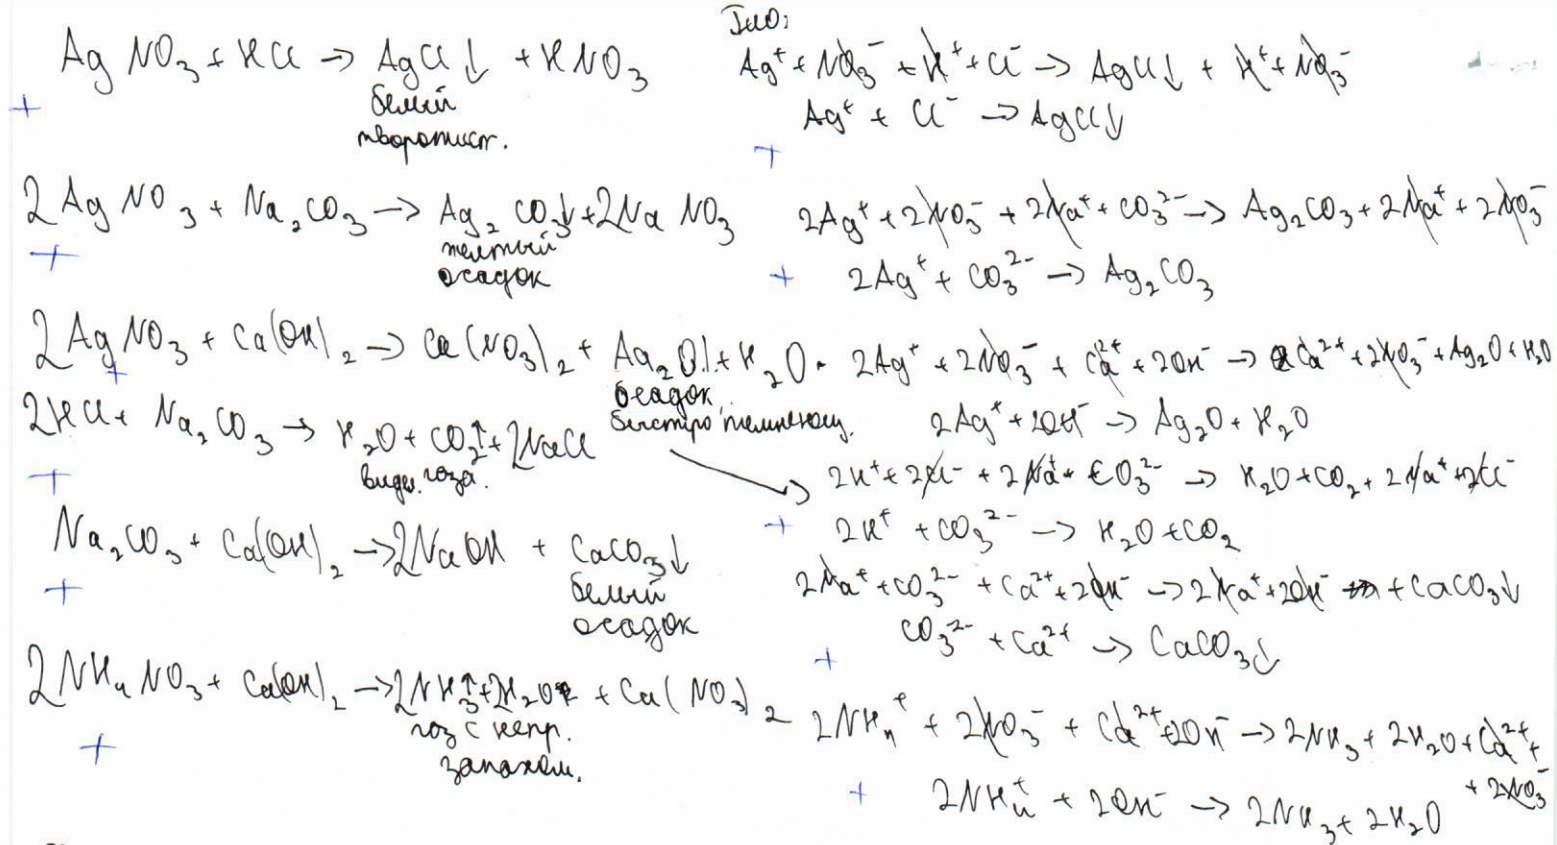 AgNO₃ + HCl → AgCl↓ + HNO₃
белый
творожист.
2AgNO₃ + Na₂CO₃ → Ag₂CO₃↓ + 2NaNO₃
желтый
осадок
2AgNO₃ + Ca(OH)₂ → Ca(NO₃)₂ + Ag₂O↓ + H₂O.
осадок,
быстро темнеющ.
2HCl + Na₂CO₃ → H₂O + CO₂↑ + 2NaCl
выдел. газа.
Na₂CO₃ + Ca(OH)₂ → 2NaOH + CaCO₃↓
белый
осадок
2NH₄NO₃ + Ca(OH)₂ → 2NH₃↑ + 2H₂O + Ca(NO₃)₂
газ с непр.
запахом.
Ag⁺ + NO₃⁻ + H⁺ + Cl⁻ → AgCl↓ + H⁺ + NO₃⁻
Ag⁺ + Cl⁻ → AgCl↓
2Ag⁺ + 2NO₃⁻ + 2Na⁺ + CO₃²⁻ → Ag₂CO₃ + 2Na⁺ + 2NO₃⁻
2Ag⁺ + CO₃²⁻ → Ag₂CO₃
2Ag⁺ + 2NO₃⁻ + Ca²⁺ + 2OH⁻ → Ca²⁺ + 2NO₃⁻ + Ag₂O + H₂O
2Ag⁺ + 2OH⁻ → Ag₂O + H₂O
2H⁺ + 2Cl⁻ + 2Na⁺ + CO₃²⁻ → H₂O + CO₂ + 2Na⁺ + 2Cl⁻
2H⁺ + CO₃²⁻ → H₂O + CO₂
2Na⁺ + CO₃²⁻ + Ca²⁺ + 2OH⁻ → 2Na⁺ + 2OH⁻ + CaCO₃↓
CO₃²⁻ + Ca²⁺ → CaCO₃↓
2NH₄⁺ + 2NO₃⁻ + Ca²⁺ + 2OH⁻ → 2NH₃ + 2H₂O + Ca²⁺ +
+ 2NO₃⁻
2NH₄⁺ + 2OH⁻ → 2NH₃ + 2H₂O